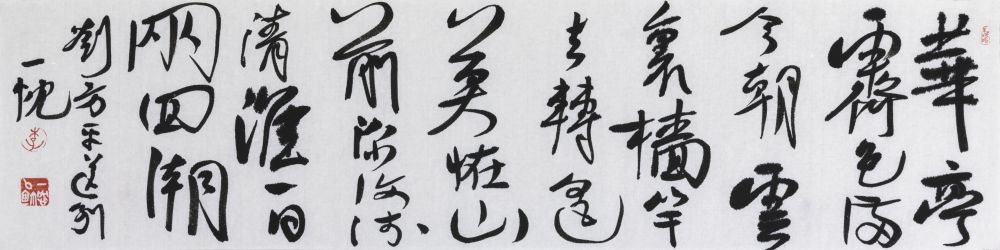 華亭
霽色滿
今朝雲
裏檣竿
去轉遙
莫怪山
前深復淺
清淮一日
兩回潮
劉方平送別
一忱
李